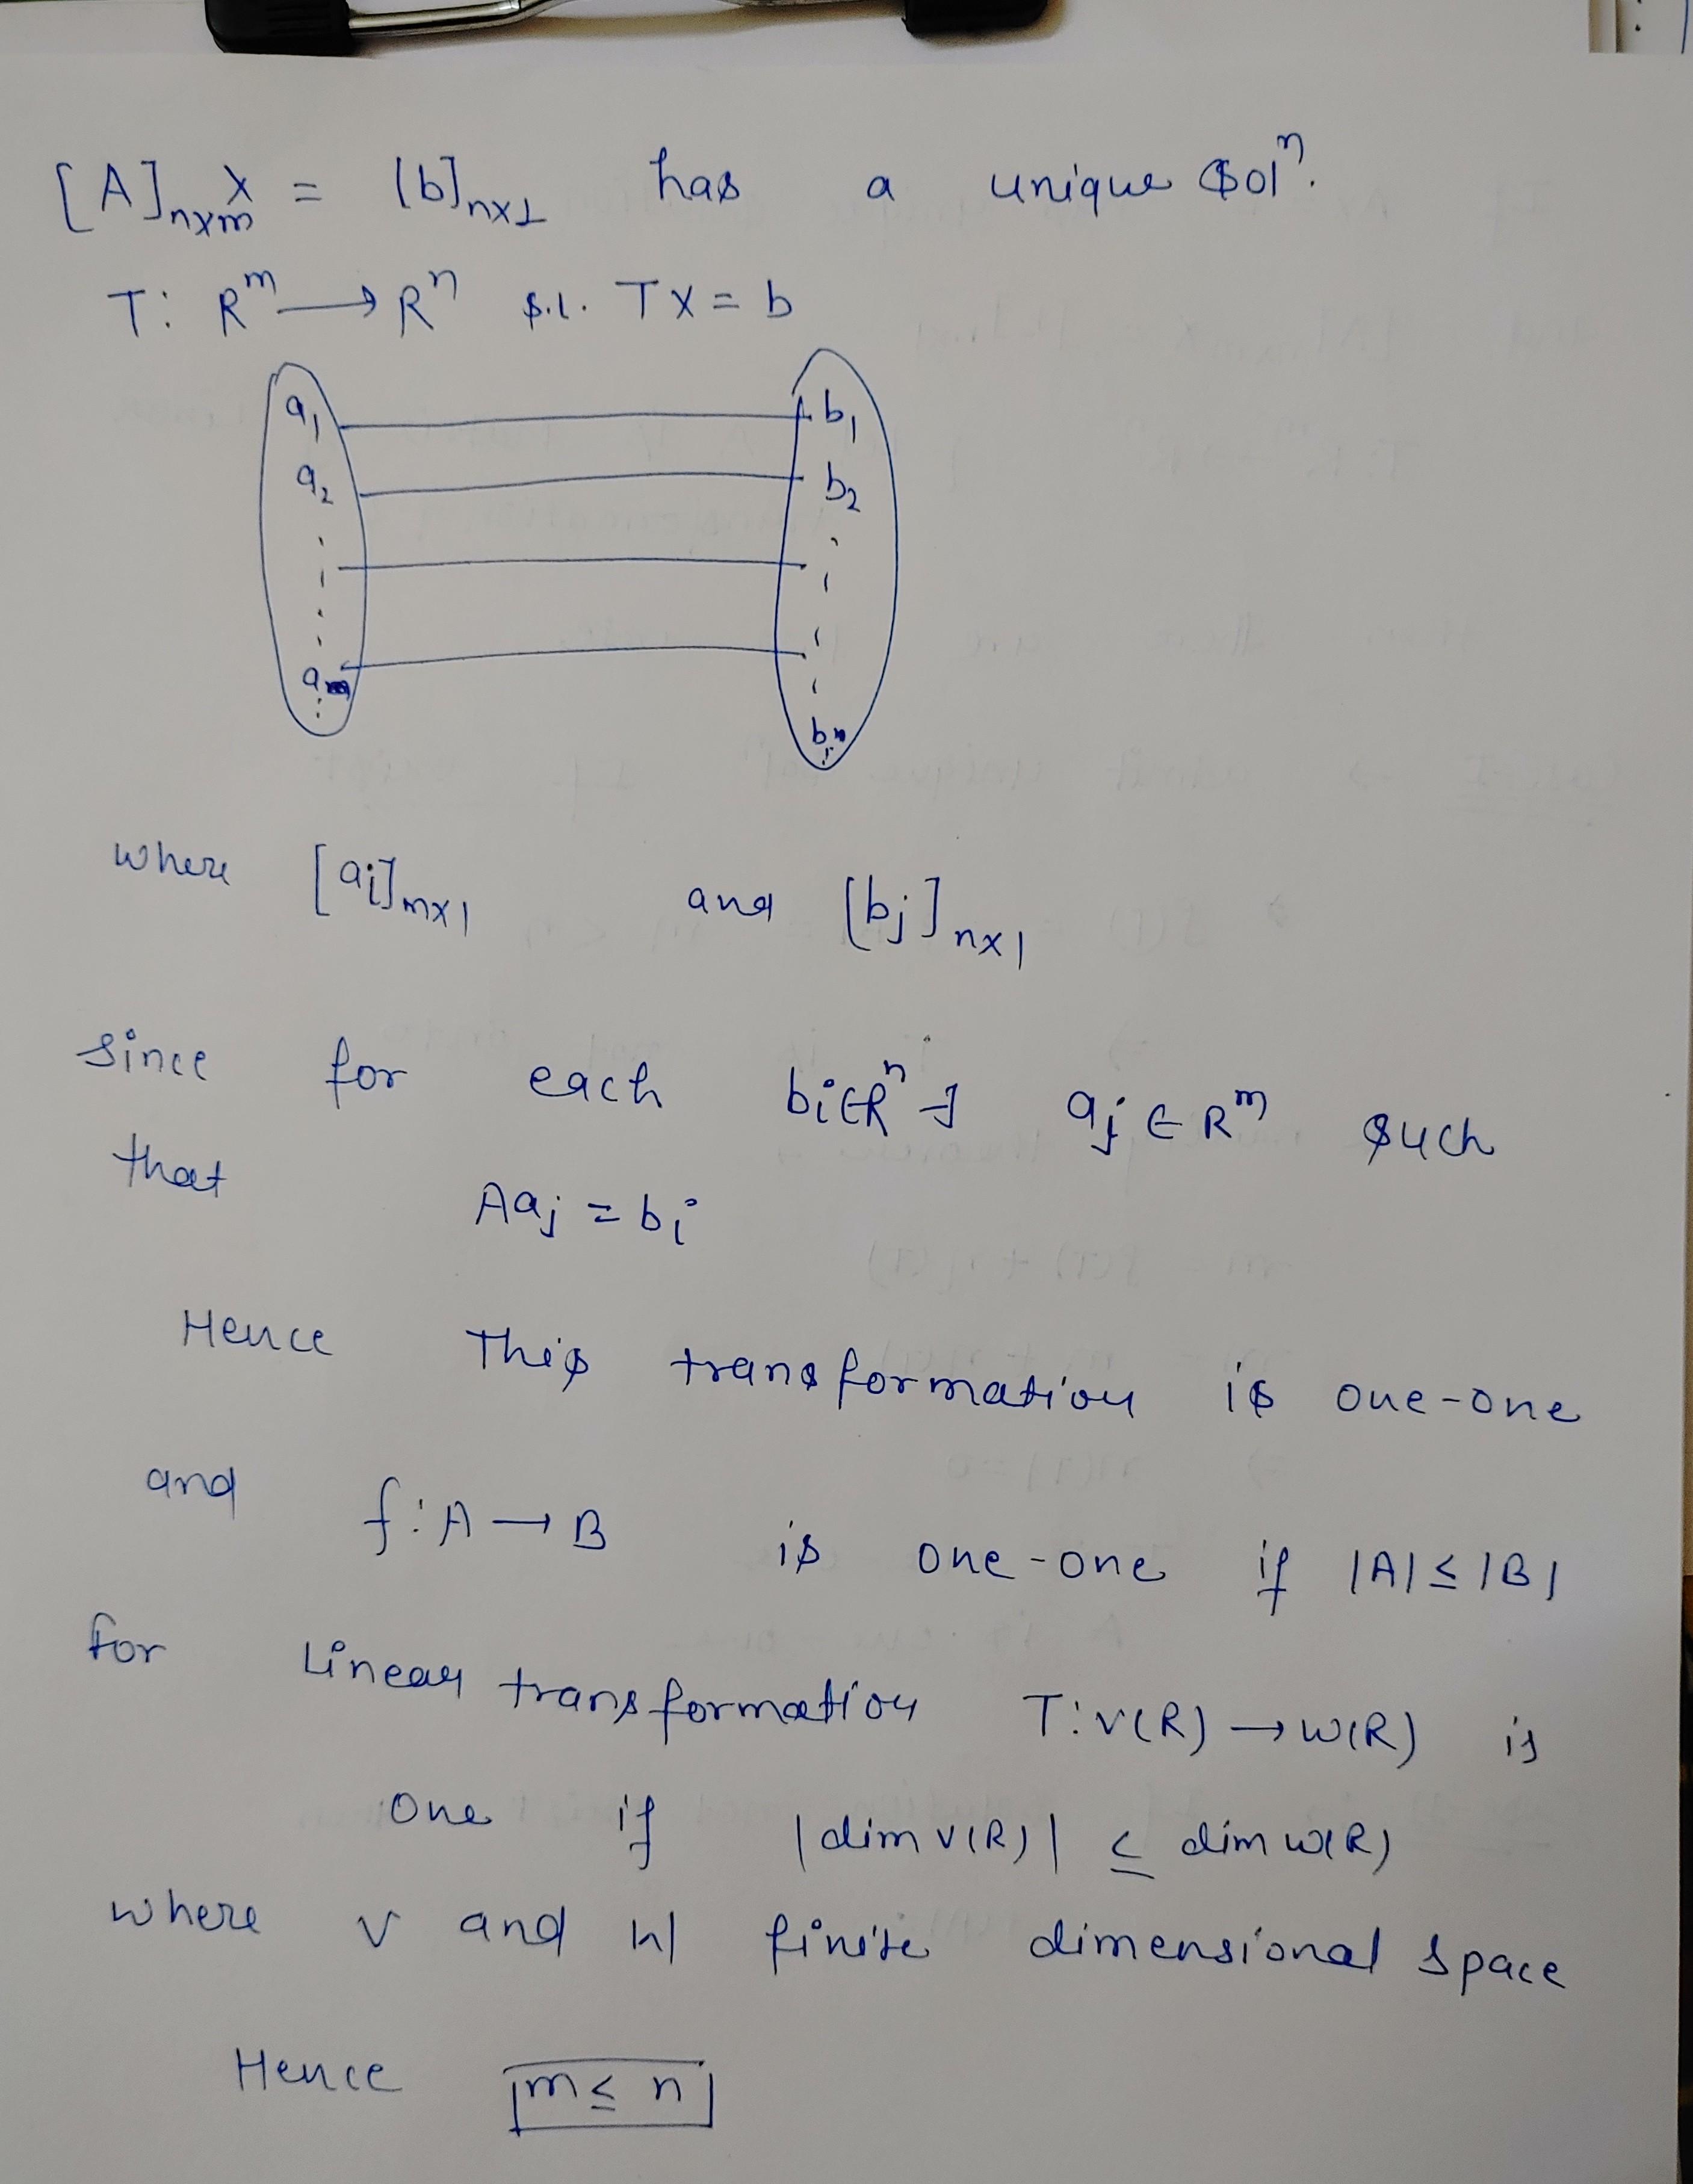 [A]n×m X = [b]n×1 has a unique Solⁿ.
T: Rᵐ → Rⁿ s.t. TX = b
a₁ b₁
a₂ b₂
aₘ bₙ
where [ai]m×1 and [bj]n×1
since for each bi∈Rⁿ ∃ aj ∈ Rᵐ such
that Aaj = bi
Hence This transformation is one-one
and f: A → B is one-one if |A| ≤ |B|
for Linear transformation T: V(R) → W(R) is
one if |dim V(R)| ≤ dim W(R)
where V and W finite dimensional space
Hence m ≤ n